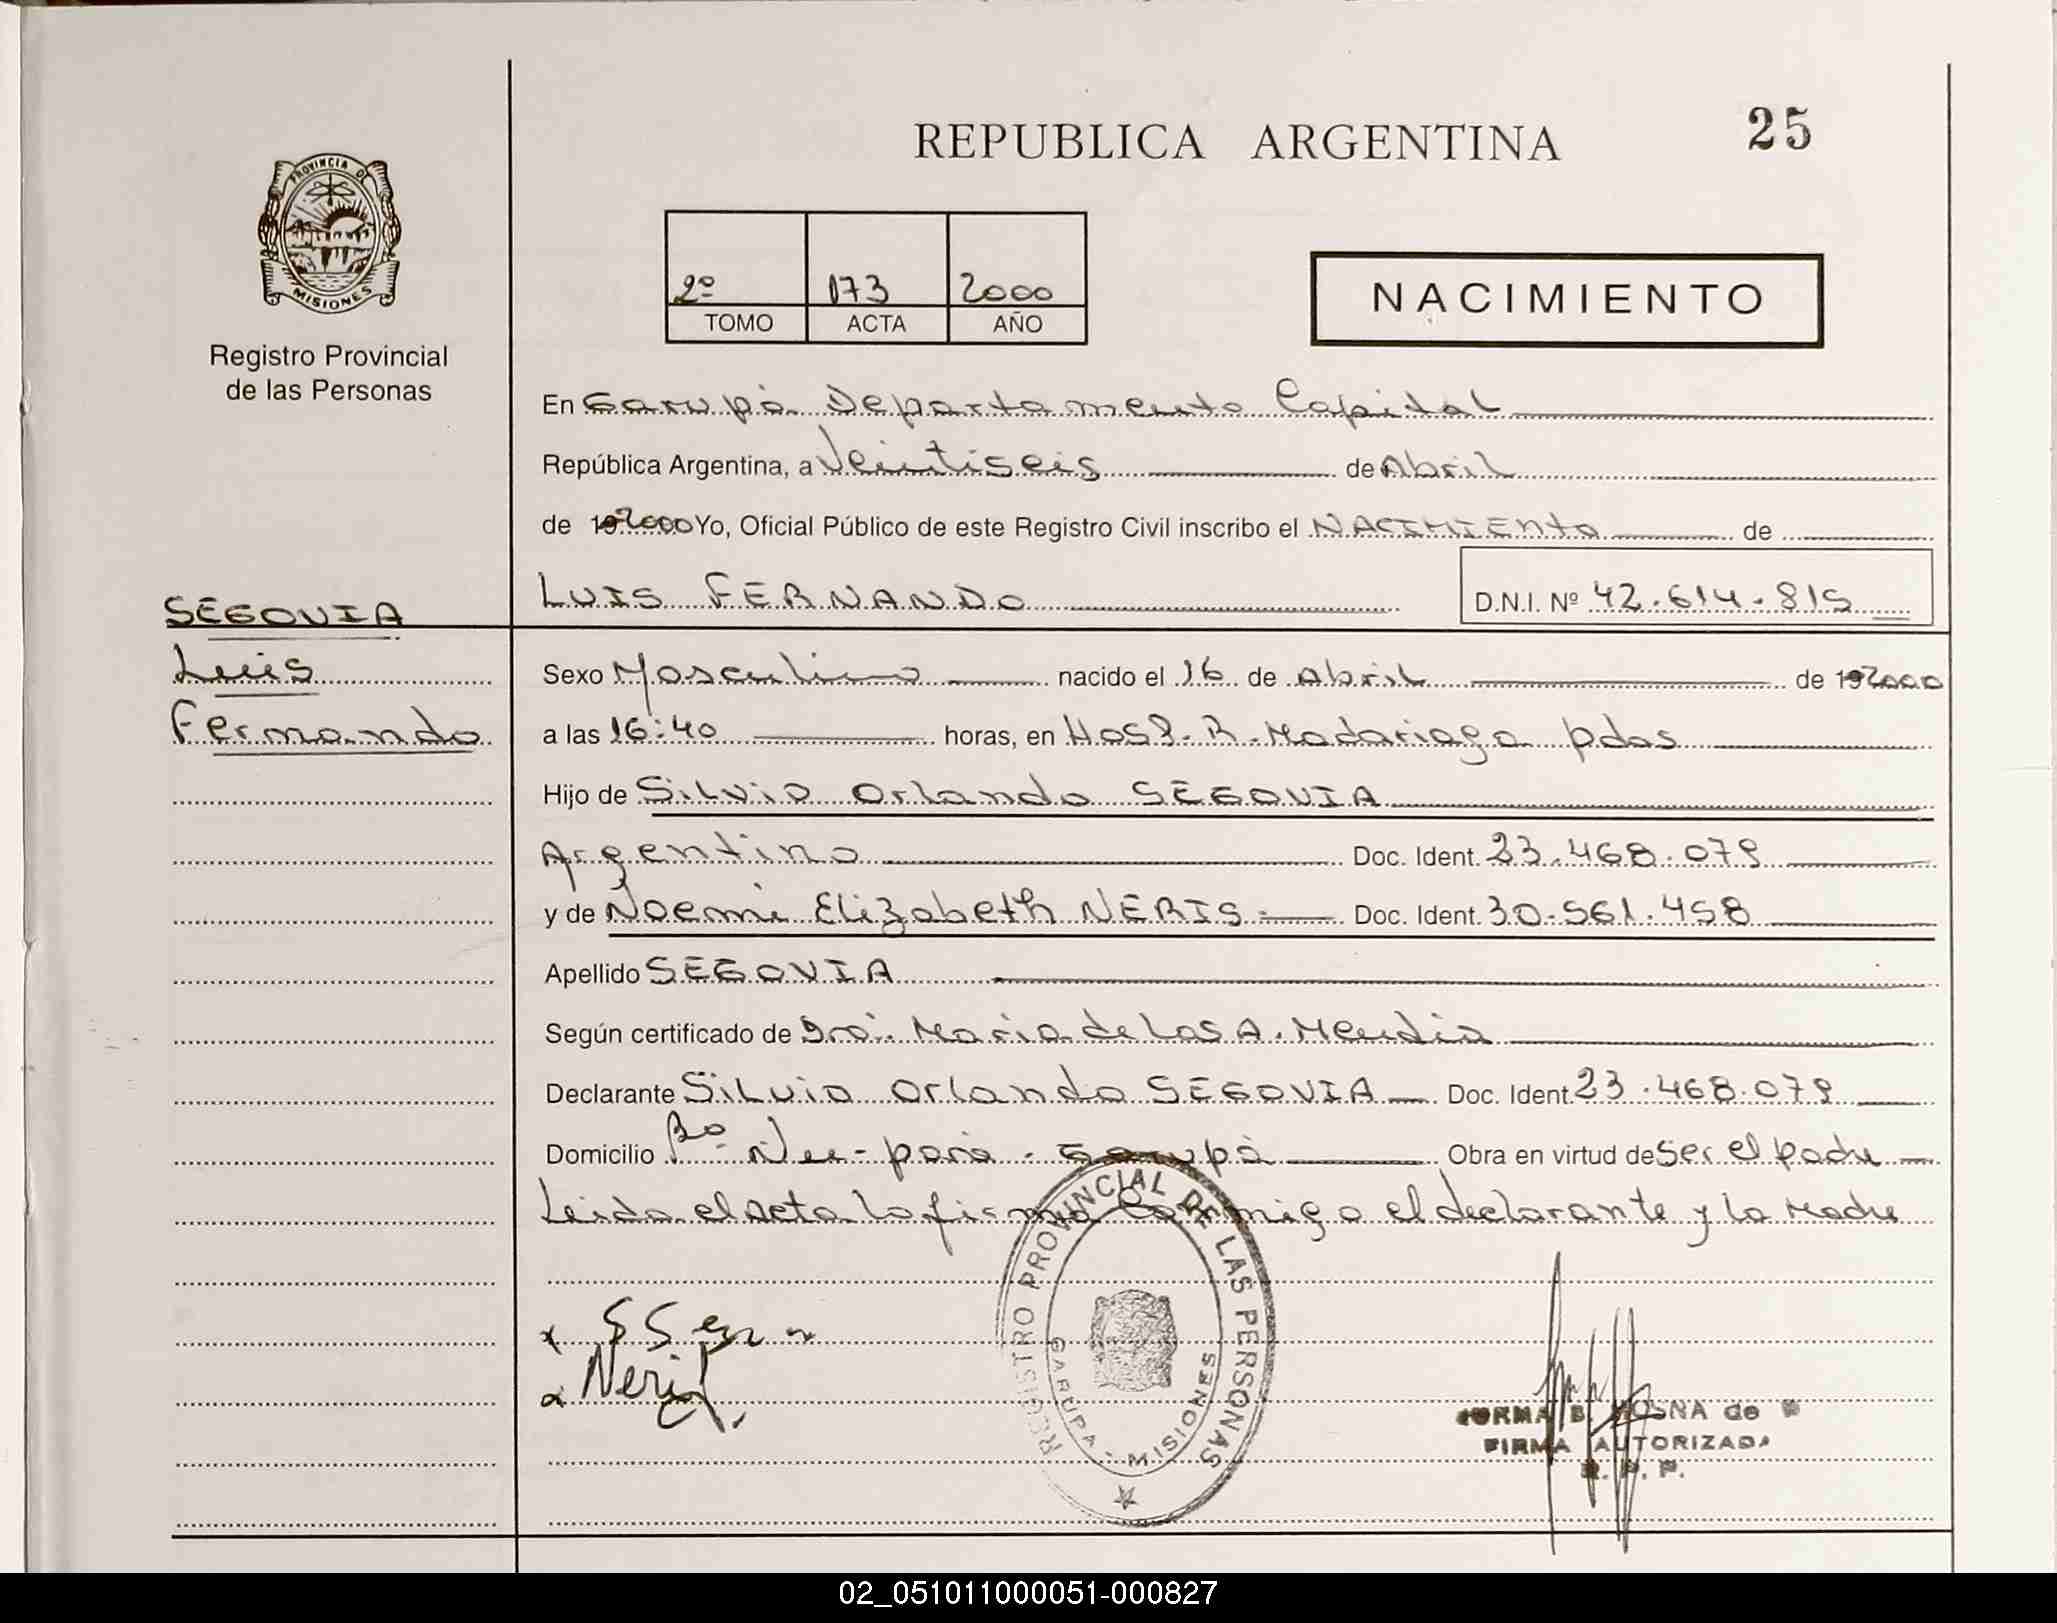 25
REPUBLICA ARGENTINA
PROVINCIA DE
MISIONES
Registro Provincial
de las Personas
2º 173 2000
TOMO ACTA AÑO
NACIMIENTO
En Garupá Departamento Capital
República Argentina, a Veintiseis de Abril
de 192000 Yo, Oficial Público de este Registro Civil inscribo el NACIMIENTO de
LUIS FERNANDO D.N.I. Nº 42.614.815
SEGOVIA
Luis
Fernando
Sexo Masculino nacido el 16 de Abril de 192000
a las 16:40 horas, en Hosp. R. Madariaga pdas
Hijo de Silvio Orlando SEGOVIA
Argentino Doc. Ident. 23.468.079
y de Noemi Elizabeth NERIS Doc. Ident. 30.561.458
Apellido SEGOVIA
Según certificado de Dra. Maria de Los A. Mendia
Declarante Silvio Orlando SEGOVIA Doc. Ident. 23.468.079
Domicilio Bº Ñu-porá - Garupá Obra en virtud de ser el padre
Leida el acta la firma conmigo el declarante y la Madre
REGISTRO PROVINCIAL DE LAS PERSONAS
GARUPA - MISIONES
Neris
NORMA B. MOSNA de
FIRMA AUTORIZADA
R. P. P.
02_051011000051-000827